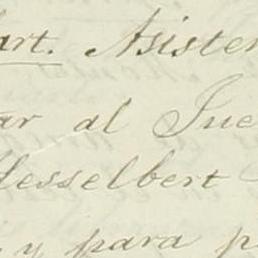 art. Asisten
ar al Jue
Hesselbert
y para p